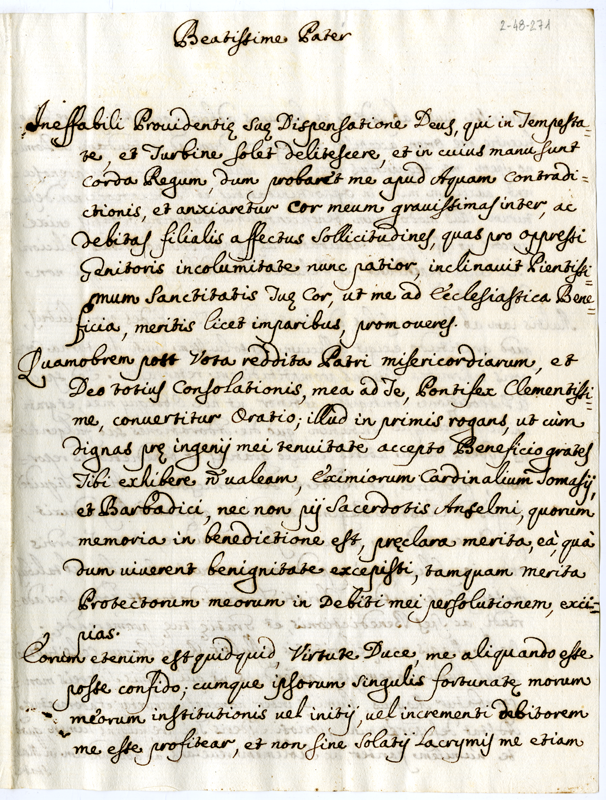 2-48-271
Beatissime Pater
Ineffabili Prouidentię Suę Dispensatione Deus, qui in Tempesta=
te, et Turbine solet delitescere, et in cuius manu sunt
corda Regum, dum probaret me apud Aquam Contradi=
ctionis, et anxiaretur cor meum grauissimas inter, ac
debitas filialis affectus Sollicitudines, quas pro oppressi
Genitoris incolumitate nunc patior, inclinauit Pientissi=
mum Sanctitatis Tuę Cor, ut me ad Ecclesiastica Bene=
ficia, meritis licet imparibus, promoueres.
Quamobrem post Vota reddita Patri misericordiarum, et
Deo totius Consolationis, mea ad Te, Pontifex Clementissi=
me, conuertitur Oratio; illud in primis rogans, ut cùm
dignas prę ingenij mei tenuitate accepto Beneficio grates
Tibi exhibere nō ualeam, Eximiorum Cardinalium Tomasij,
et Barbadici, nec non pij Sacerdotis Anselmi, quorum
memoria in benedictione est, pręclara merita, eà, quà
dum uiuerent benignitate excepisti, tamquam merita
Protectorum meorum in Debiti mei persolutionem, exci=
pias.
Eorum etenim est quidquid, Virtute Duce, me aliquando esse
posse confido; cumque ipsorum singulis fortunatę morum
meorum institutionis uel initij, uel incrementi debitorem
me esse profitear, et non sine Solatij Lacrymis me etiam